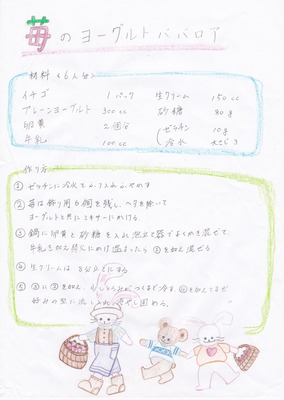 苺のヨーグルトババロア
材料(6人分)
イチゴ 1パック 生クリーム 150cc
プレーンヨーグルト 300cc 砂糖 80g
卵黄 2個分 ゼラチン 10g
牛乳 100cc 冷水 大さじ3
作り方
① ゼラチンに冷水を ふり入れ ふやかす
② 苺は飾り用6個を残し、ヘタを除いて
ヨーグルトと共にミキサーにかける。
③ 鍋に卵黄と砂糖を入れ泡立て器でよくかき混ぜて、
牛乳を加え弱火にかけ温まったら①を加え混ぜる
④ 生クリームは8分立てにする
⑤ ③に②を加え、とろみがつくまで冷す ④を加えてまぜ
好みの型に流し入れ冷やし固める。